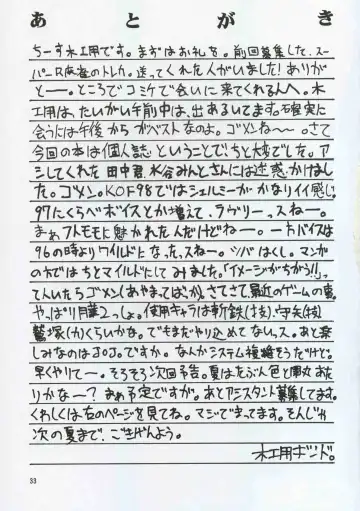 あとがき
ちーす木工用です。まずはお礼を。前回募集した、スー
パーリアル麻雀のトレカ。送ってくれた人がいました!ありがと
ーー。ところでコミケで会いに来てくれる人へ。木
工用は、たいがい午前中は、出あるいてます。確実に
会うには午後からがベストなのよ。ゴメンね〜〜。さて
今回の本は個人誌ということでちと大変でした。ア
シしてくれた田中君、水谷みんとさんには迷惑かけまし
た。ゴメン。KOF98ではシェルミーがかなりイイ感じ。
97にくらべボイスとか増えて、ラヴリーっスねー。
まぁ、フトモモに魅かれたんだけどねー。レオナバイスは
96の時よりワイルドになったっスねー。ツバはくし。マンガ
の方ではちとマイルドにしてみました。「イメージがちがう!!」っ
て人いたらゴメン(あやまってばっか)。さてさて、最近のゲームの裏、
やっぱり月華っしょ。使用キャラは斬鉄(技)、守矢(技)
鷲塚(力)くらいかな。でもまだやり込めてないっス。あと楽
しみなのはJOJO。ですか。なんかシステム複雑そうだけど。
早くやりてー。そろそろ次回予告。夏はたぶん色と庵丸あた
りかなー?まぁ予定ですが。あとアシスタント募集してます。
くわしくは左のページを見てね。マジでまってます。そんじゃ
次の夏まで、ごきげんよう。
木工用ボンド。
33